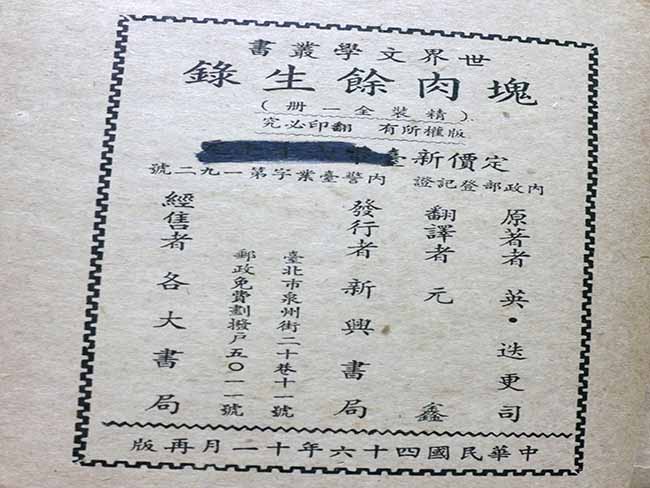 世界文學叢書
塊肉餘生錄
(精裝全一冊)
版權所有 翻印必究
定價新臺
內政部登記證 內警臺業字第一九二號
原著者 英·迭更司
翻譯者 元鑫
發行者 新興書局
臺北市泉州街二十巷十一號
郵政免費劃撥戶五〇一一號
經售者 各大書局
中華民國四十六年十一月再版